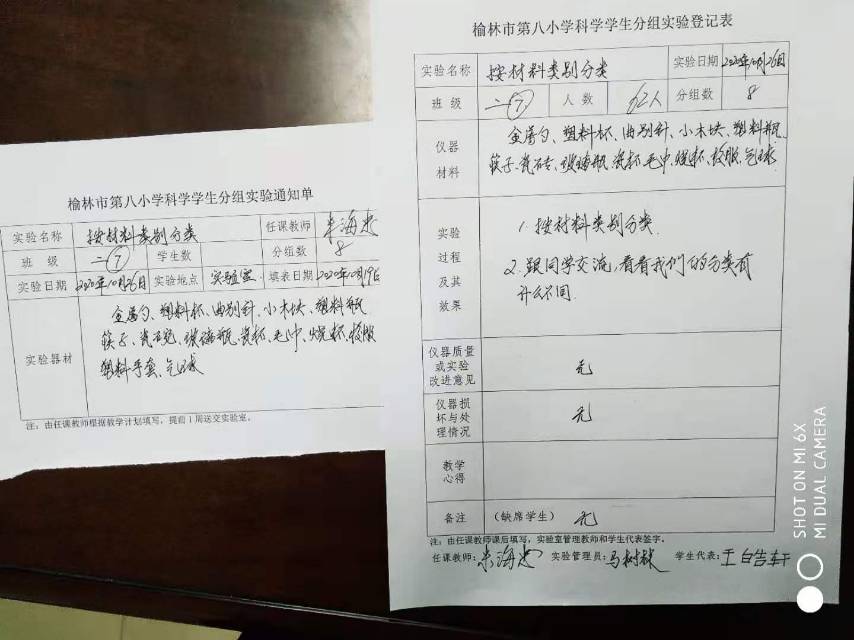 榆林市第八小学科学学生分组实验通知单
实验名称 按材料类别分类 任课教师
班 级 二(7) 学生数 分组数 8
实验日期 2020年10月26日 实验地点 实验室 填表日期 2020年10月19日
实验器材
金属勺、塑料杯、曲别针、小木块、塑料瓶
筷子、瓷砖、玻璃瓶、瓷杯、毛巾、烧杯、校服
塑料手套、气球
注:由任课教师根据教学计划填写,提前1周送交实验室。
榆林市第八小学科学学生分组实验登记表
实验名称 按材料类别分类 实验日期 2020年10月26日
班 级 二(7) 人 数 62人 分组数 8
仪器
材料
金属勺、塑料杯、曲别针、小木块、塑料瓶
筷子、瓷砖、玻璃瓶、瓷杯、毛巾、烧杯、校服、气球
实验
过程
及其
效果
1. 按材料类别分类.
2. 跟同学交流,看看我们的分类有
什么不同.
仪器质量
或实验
改进意见
无
仪器损
坏与处
理情况
无
教学
心得
备注 (缺席学生) 无
注:由任课教师课后填写,实验室管理教师和学生代表签字。
任课教师: 实验管理员:马树林 学生代表:
SHOT ON MI 6X
MI DUAL CAMERA